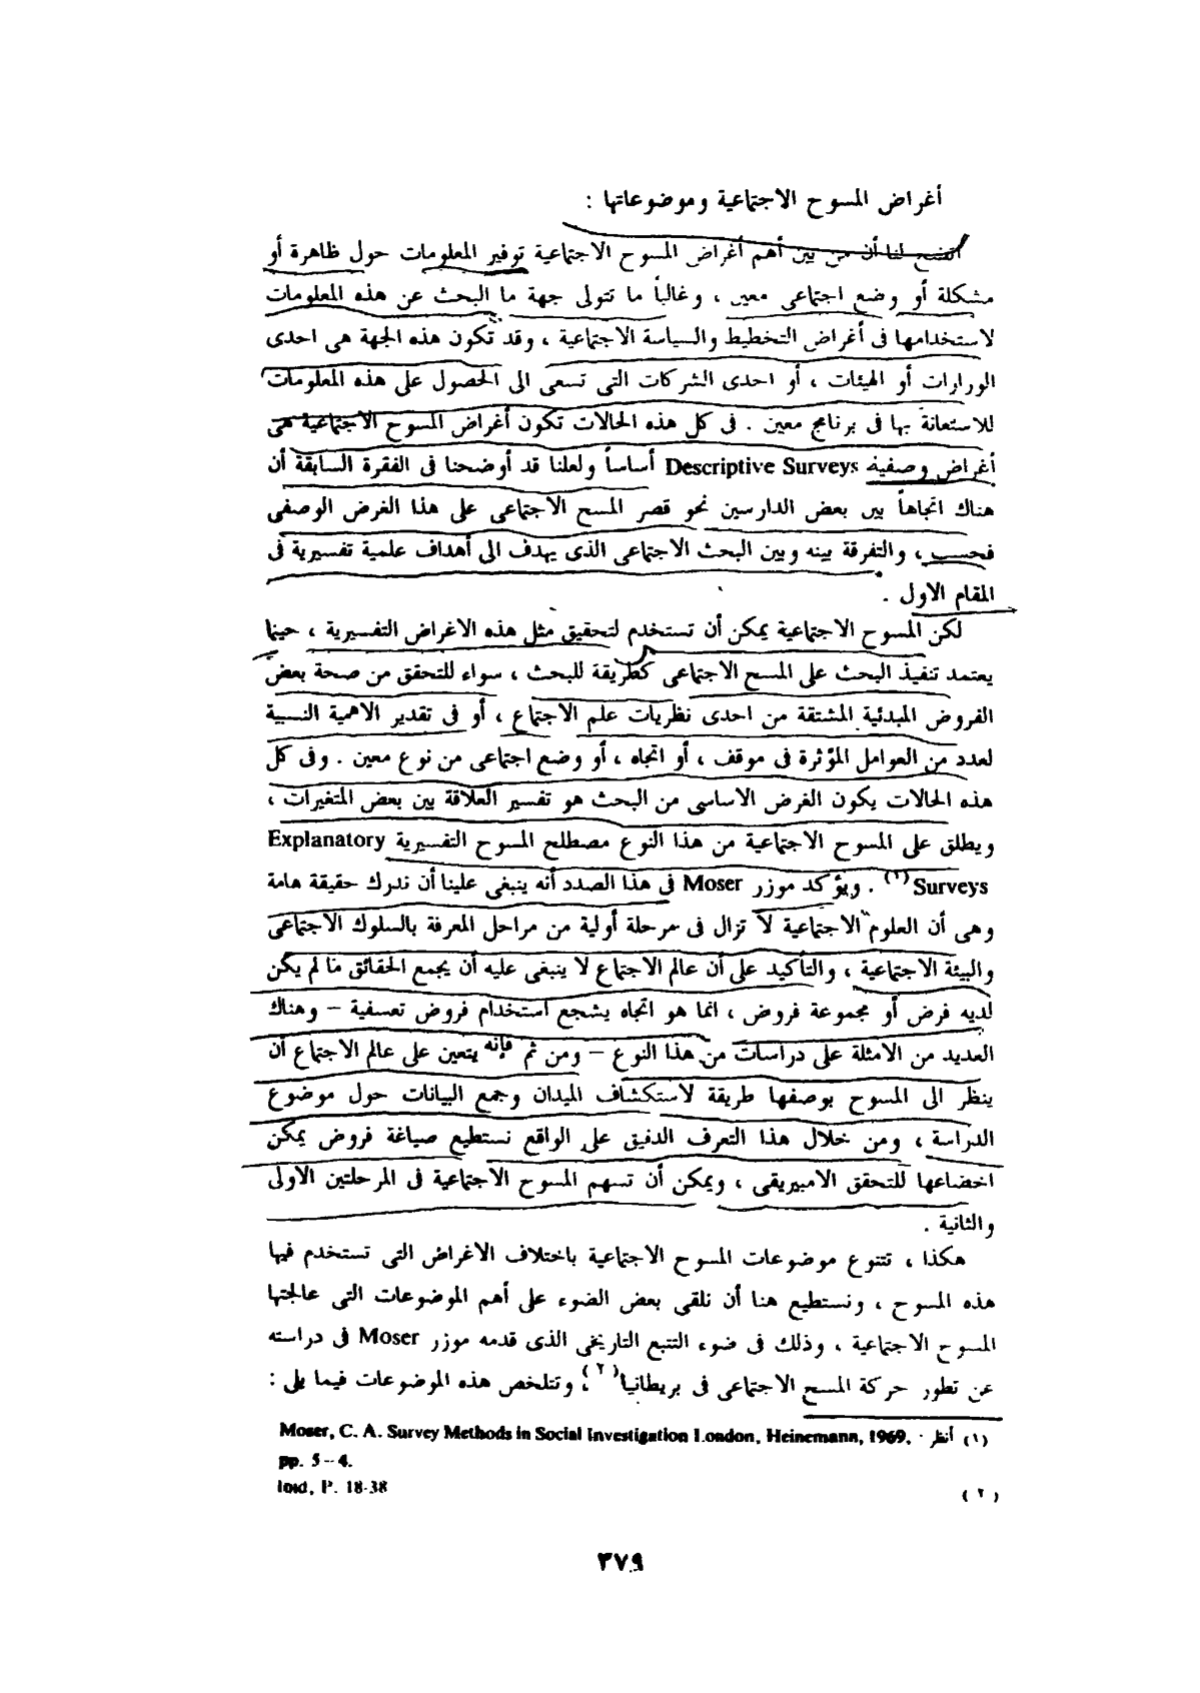 أغراض المسوح الاجتماعية وموضوعاتها :
اتضح لنا أن من بين أهم أغراض المسوح الاجتماعية توفير المعلومات حول ظاهرة أو
مشكلة أو وضع اجتماعى معين ، وغالباً ما تتولى جهة ما البحث عن هذه المعلومات
لاستخدامها فى أغراض التخطيط والسياسة الاجتماعية ، وقد تكون هذه الجهة هى احدى
الوزارات أو الهيئات ، أو احدى الشركات التى تسعى الى الحصول على هذه المعلومات
للاستعانة بها فى برنامج معين . فى كل هذه الحالات تكون أغراض المسوح الاجتماعية هى
أغراض وصفية Descriptive Surveys أساساً ولعلنا قد أوضحنا فى الفقرة السابقة أن
هناك اتجاهاً بين بعض الدارسين نحو قصر المسح الاجتماعى على هذا الغرض الوصفى
فحسب ، والتفرقة بينه وبين البحث الاجتماعى الذى يهدف الى أهداف علمية تفسيرية فى
المقام الاول .
لكن المسوح الاجتماعية يمكن أن تستخدم لتحقيق مثل هذه الاغراض التفسيرية ، حينما
يعتمد تنفيذ البحث على المسح الاجتماعى كطريقة للبحث ، سواء للتحقق من صحة بعض
الفروض المبدئية المشتقة من احدى نظريات علم الاجتماع ، أو فى تقدير الاهمية النسبية
لعدد من العوامل المؤثرة فى موقف ، أو اتجاه ، أو وضع اجتماعى من نوع معين . وفى كل
هذه الحالات يكون الغرض الاساسى من البحث هو تفسير العلاقة بين بعض المتغيرات ،
ويطلق على المسوح الاجتماعية من هذا النوع مصطلح المسوح التفسيرية Explanatory
Surveys (١) . ويؤكد موزر Moser فى هذا الصدد أنه ينبغى علينا أن ندرك حقيقة هامة
وهى أن العلوم الاجتماعية لا تزال فى مرحلة أولية من مراحل المعرفة بالسلوك الاجتماعى
والبيئة الاجتماعية ، والتأكيد على أن عالم الاجتماع لا ينبغى عليه أن يجمع الحقائق ما لم يكن
لديه فرض أو مجموعة فروض ، انما هو اتجاه يشجع استخدام فروض تعسفية – وهناك
العديد من الامثلة على دراسات من هذا النوع – ومن ثم فإنه يتعين على عالم الاجتماع أن
ينظر الى المسوح بوصفها طريقة لاستكشاف الميدان وجمع البيانات حول موضوع
الدراسة ، ومن خلال هذا التعرف الدقيق على الواقع نستطيع صياغة فروض يمكن
اخضاعها للتحقق الامبيريقى ، ويمكن أن تسهم المسوح الاجتماعية فى المرحلتين الاولى
والثانية .
هكذا ، تتنوع موضوعات المسوح الاجتماعية باختلاف الاغراض التى تستخدم فيها
هذه المسوح ، ونستطيع هنا أن نلقى بعض الضوء على أهم الموضوعات التى عالجتها
المسوح الاجتماعية ، وذلك فى ضوء التتبع التاريخى الذى قدمه موزر Moser فى دراسته
عن تطور حركة المسح الاجتماعى فى بريطانيا (٢) ، وتتلخص هذه الموضوعات فيما يلى :
(١) أنظر · Moser, C. A. Survey Methods in Social Investigation London, Heinemann, 1969,
pp. 5 – 4.
(٢) Ibid, P. 18-38
٣٧٩